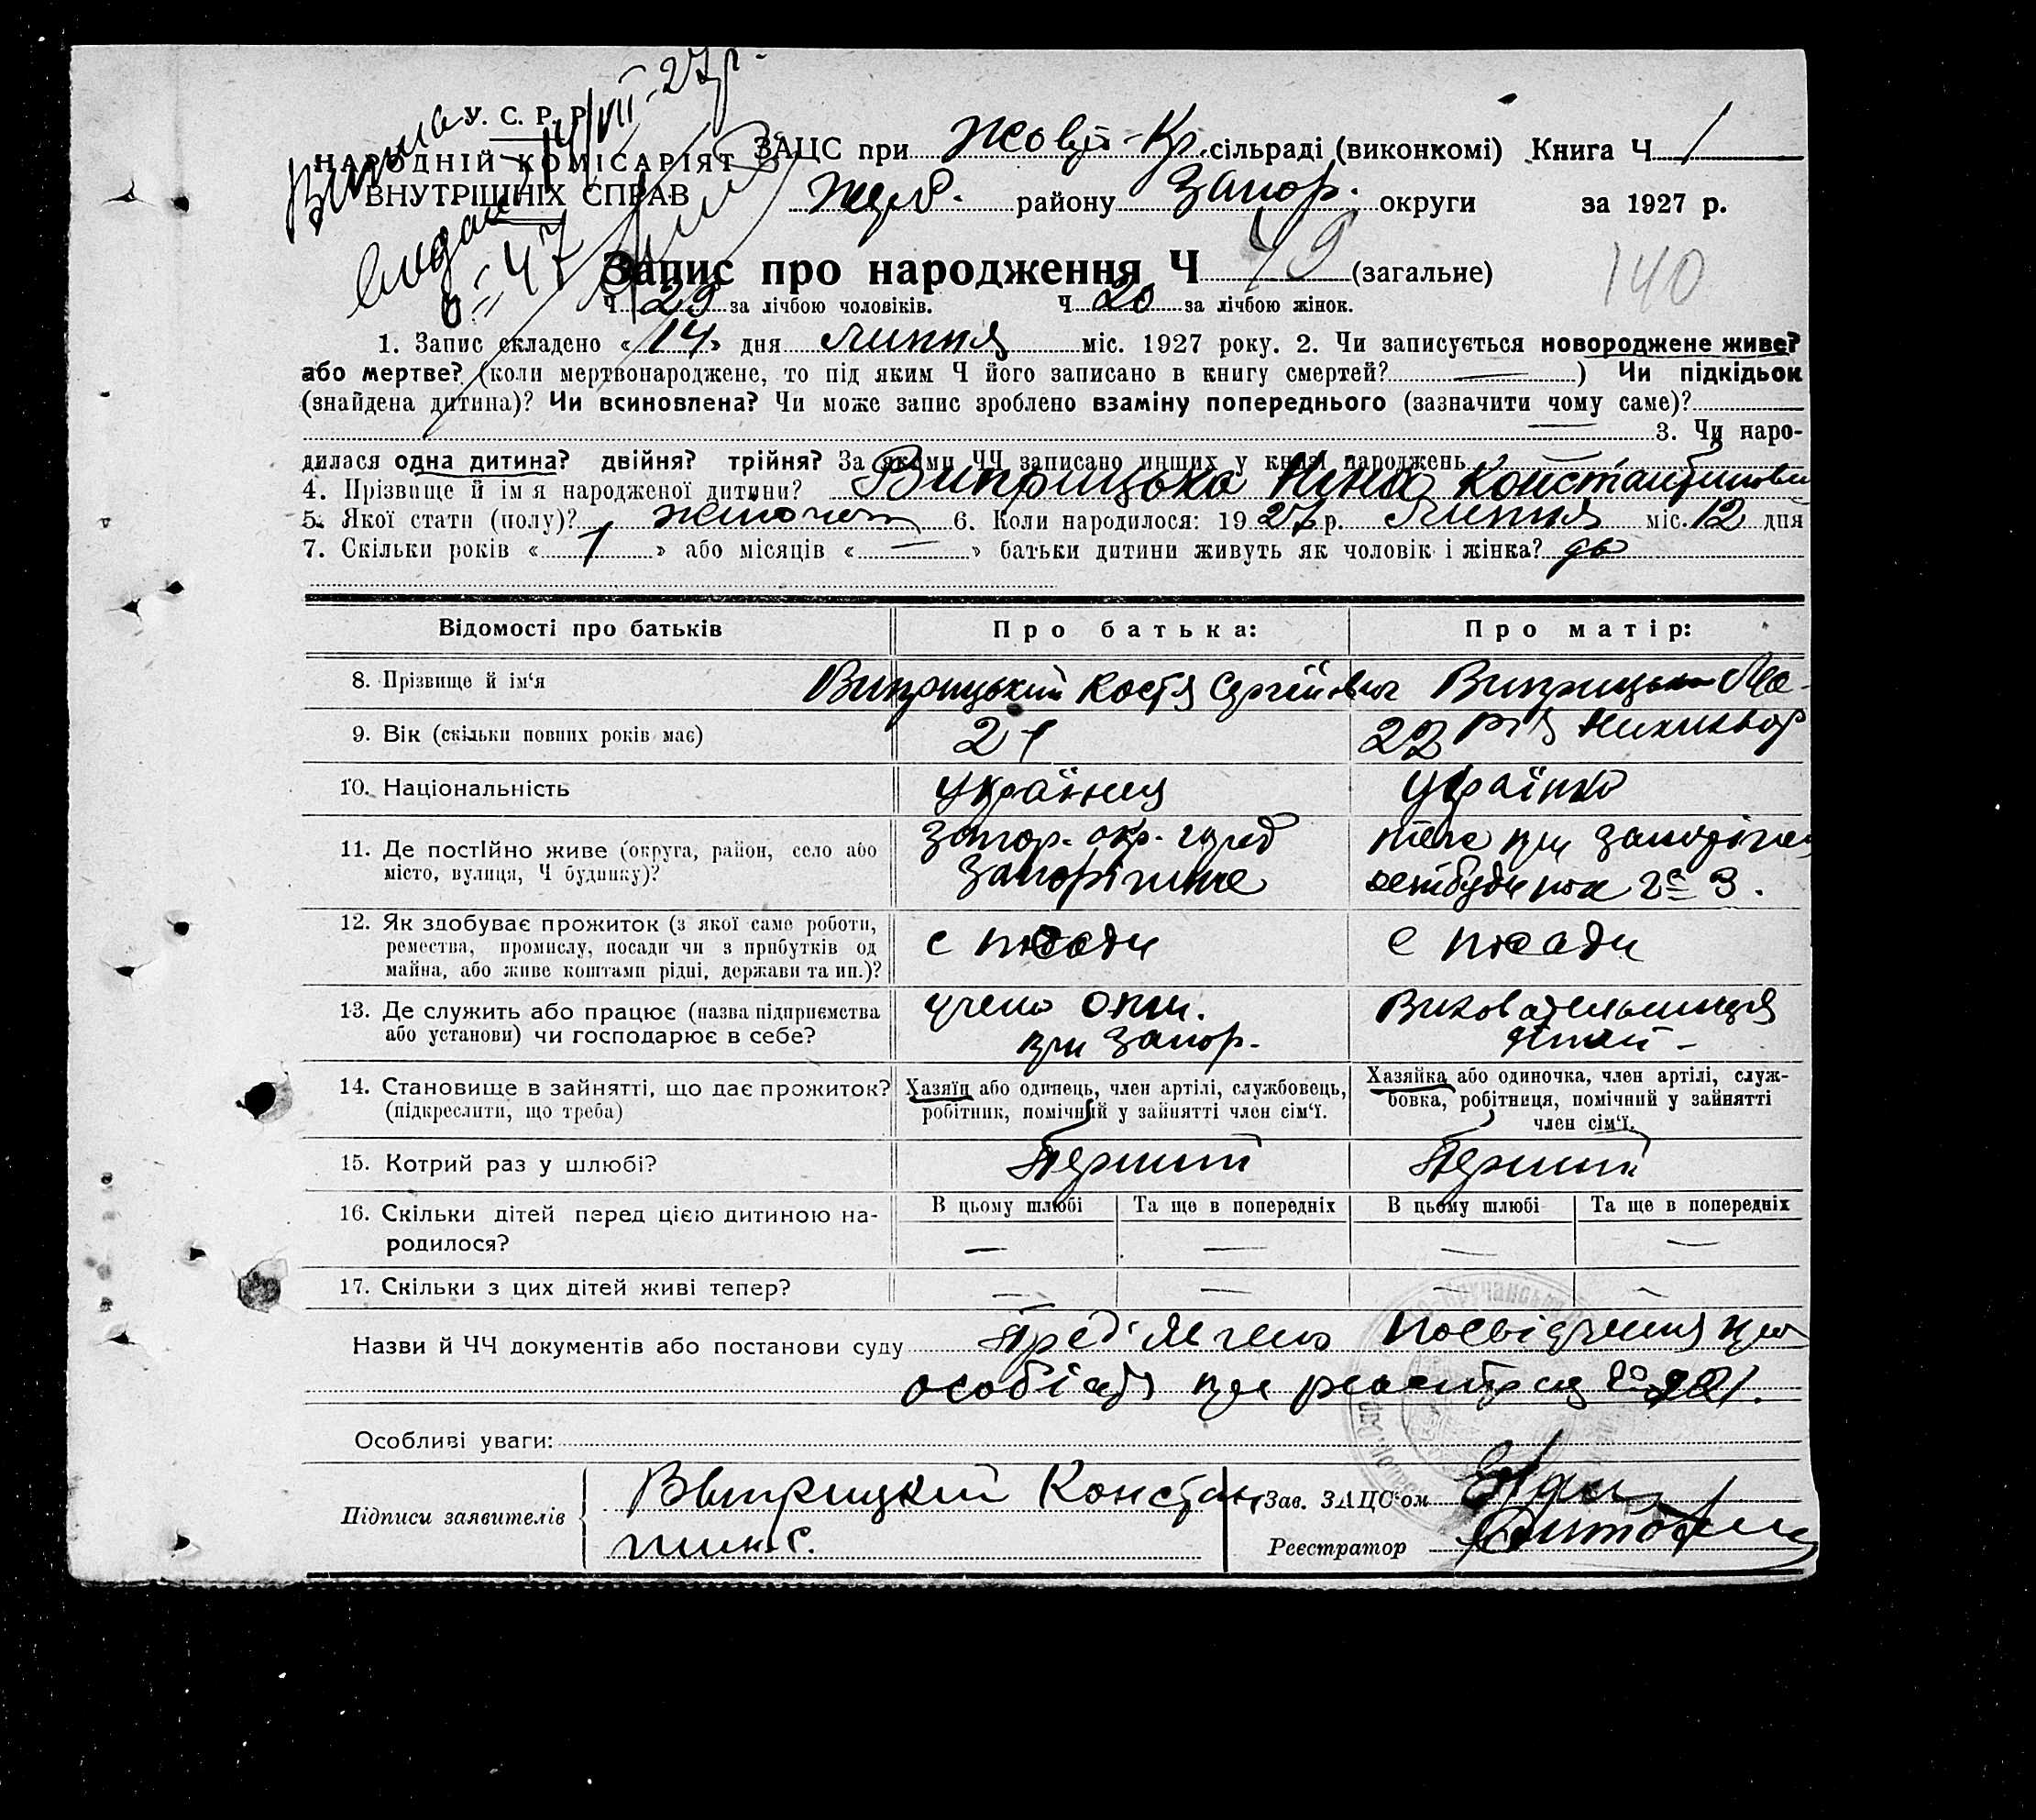 У. С. Р. Р.
НАРОДНІЙ КОМІСАРІЯТ
ВНУТРІШНІХ СПРАВ
14/VII-27р.
ЗАЦС при Жовт-Кр. сільраді (виконкомі) Книга Ч 1
району Запор. округи за 1927 р.
Запис про народження Ч 49 (загальне)
140
Ч 29 за лічбою чоловіків. Ч 20 за лічбою жінок.
1. Запис складено «14» дня липня міс. 1927 року. 2. Чи записується новороджене живе?
або мертве? (коли мертвонароджене, то під яким Ч його записано в книгу смертей? —) Чи підкідьок
(знайдена дитина)? Чи всиновлена? Чи може запис зроблено взаміну попереднього (зазначити чому саме)?
— 3. Чи наро-
дилася одна дитина? двійня? трійня? За якими ЧЧ записано инших у книзі народжень —
4. Прізвище й ім'я народженої дитини? Виприцька Ніна Константинов
5. Якої стати (полу)? 6. Коли народилося: 1927 р. липня міс. 12 дня
7. Скільки років «1» або місяців «—» батьки дитини живуть як чоловік і жінка? да
Відомості про батьків Про батька: Про матір:
8. Прізвище й ім'я Виприцький Костя Сергійович Виприцька Ма-
9. Вік (скільки повних років має) 21 22 рія Никихвор
10. Національність Українец Українка
11. Де постійно живе (округа, район, село або Запор. окр.
місто, вулиця, Ч будинку)? Запоріжже № 3.
12. Як здобуває прожиток (з якої саме роботи, с посади с посади
ремества, промислу, посади чи з прибутків од
майна, або живе коштами рідні, держави та ин.)?
13. Де служить або працює (назва підприємства Виховательниця
або установи) чи господарює в себе? при Запор. дітей -
14. Становище в зайнятті, що дає прожиток? Хазяїн або одинець, член артілі, службовець, Хазяйка або одиночка, член артілі, служ-
(підкреслити, що треба) робітник, помічний у зайнятті член сім'ї. бовка, робітниця, помічний у зайнятті
член сім'ї.
15. Котрий раз у шлюбі? Перший Перший
16. Скільки дітей перед цією дитиною на- В цьому шлюбі Та ще в попередніх В цьому шлюбі Та ще в попередніх
родилося? — — — —
17. Скільки з цих дітей живі тепер? — — — —
Назви й ЧЧ документів або постанови суду Пред'явлено посвідчення про
особість
Особливі уваги:
Підписи заявителів Виприцкий Констан Зав. ЗАЦС'ом
тин.с. Реєстратор